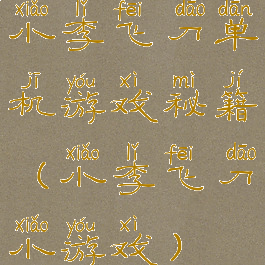 xiǎo lǐ fēi dāo dān
小李飞刀单
jī yóu xì mì jí
机游戏秘籍
xiǎo lǐ fēi dāo
(小李飞刀
xiǎo yóu xì
小游戏)